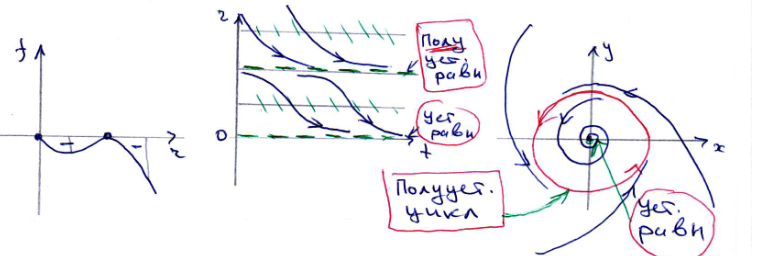 f
r
r
0
t
Полу
уст.
равн
уст.
равн
y
x
Полууст.
цикл
уст.
равн